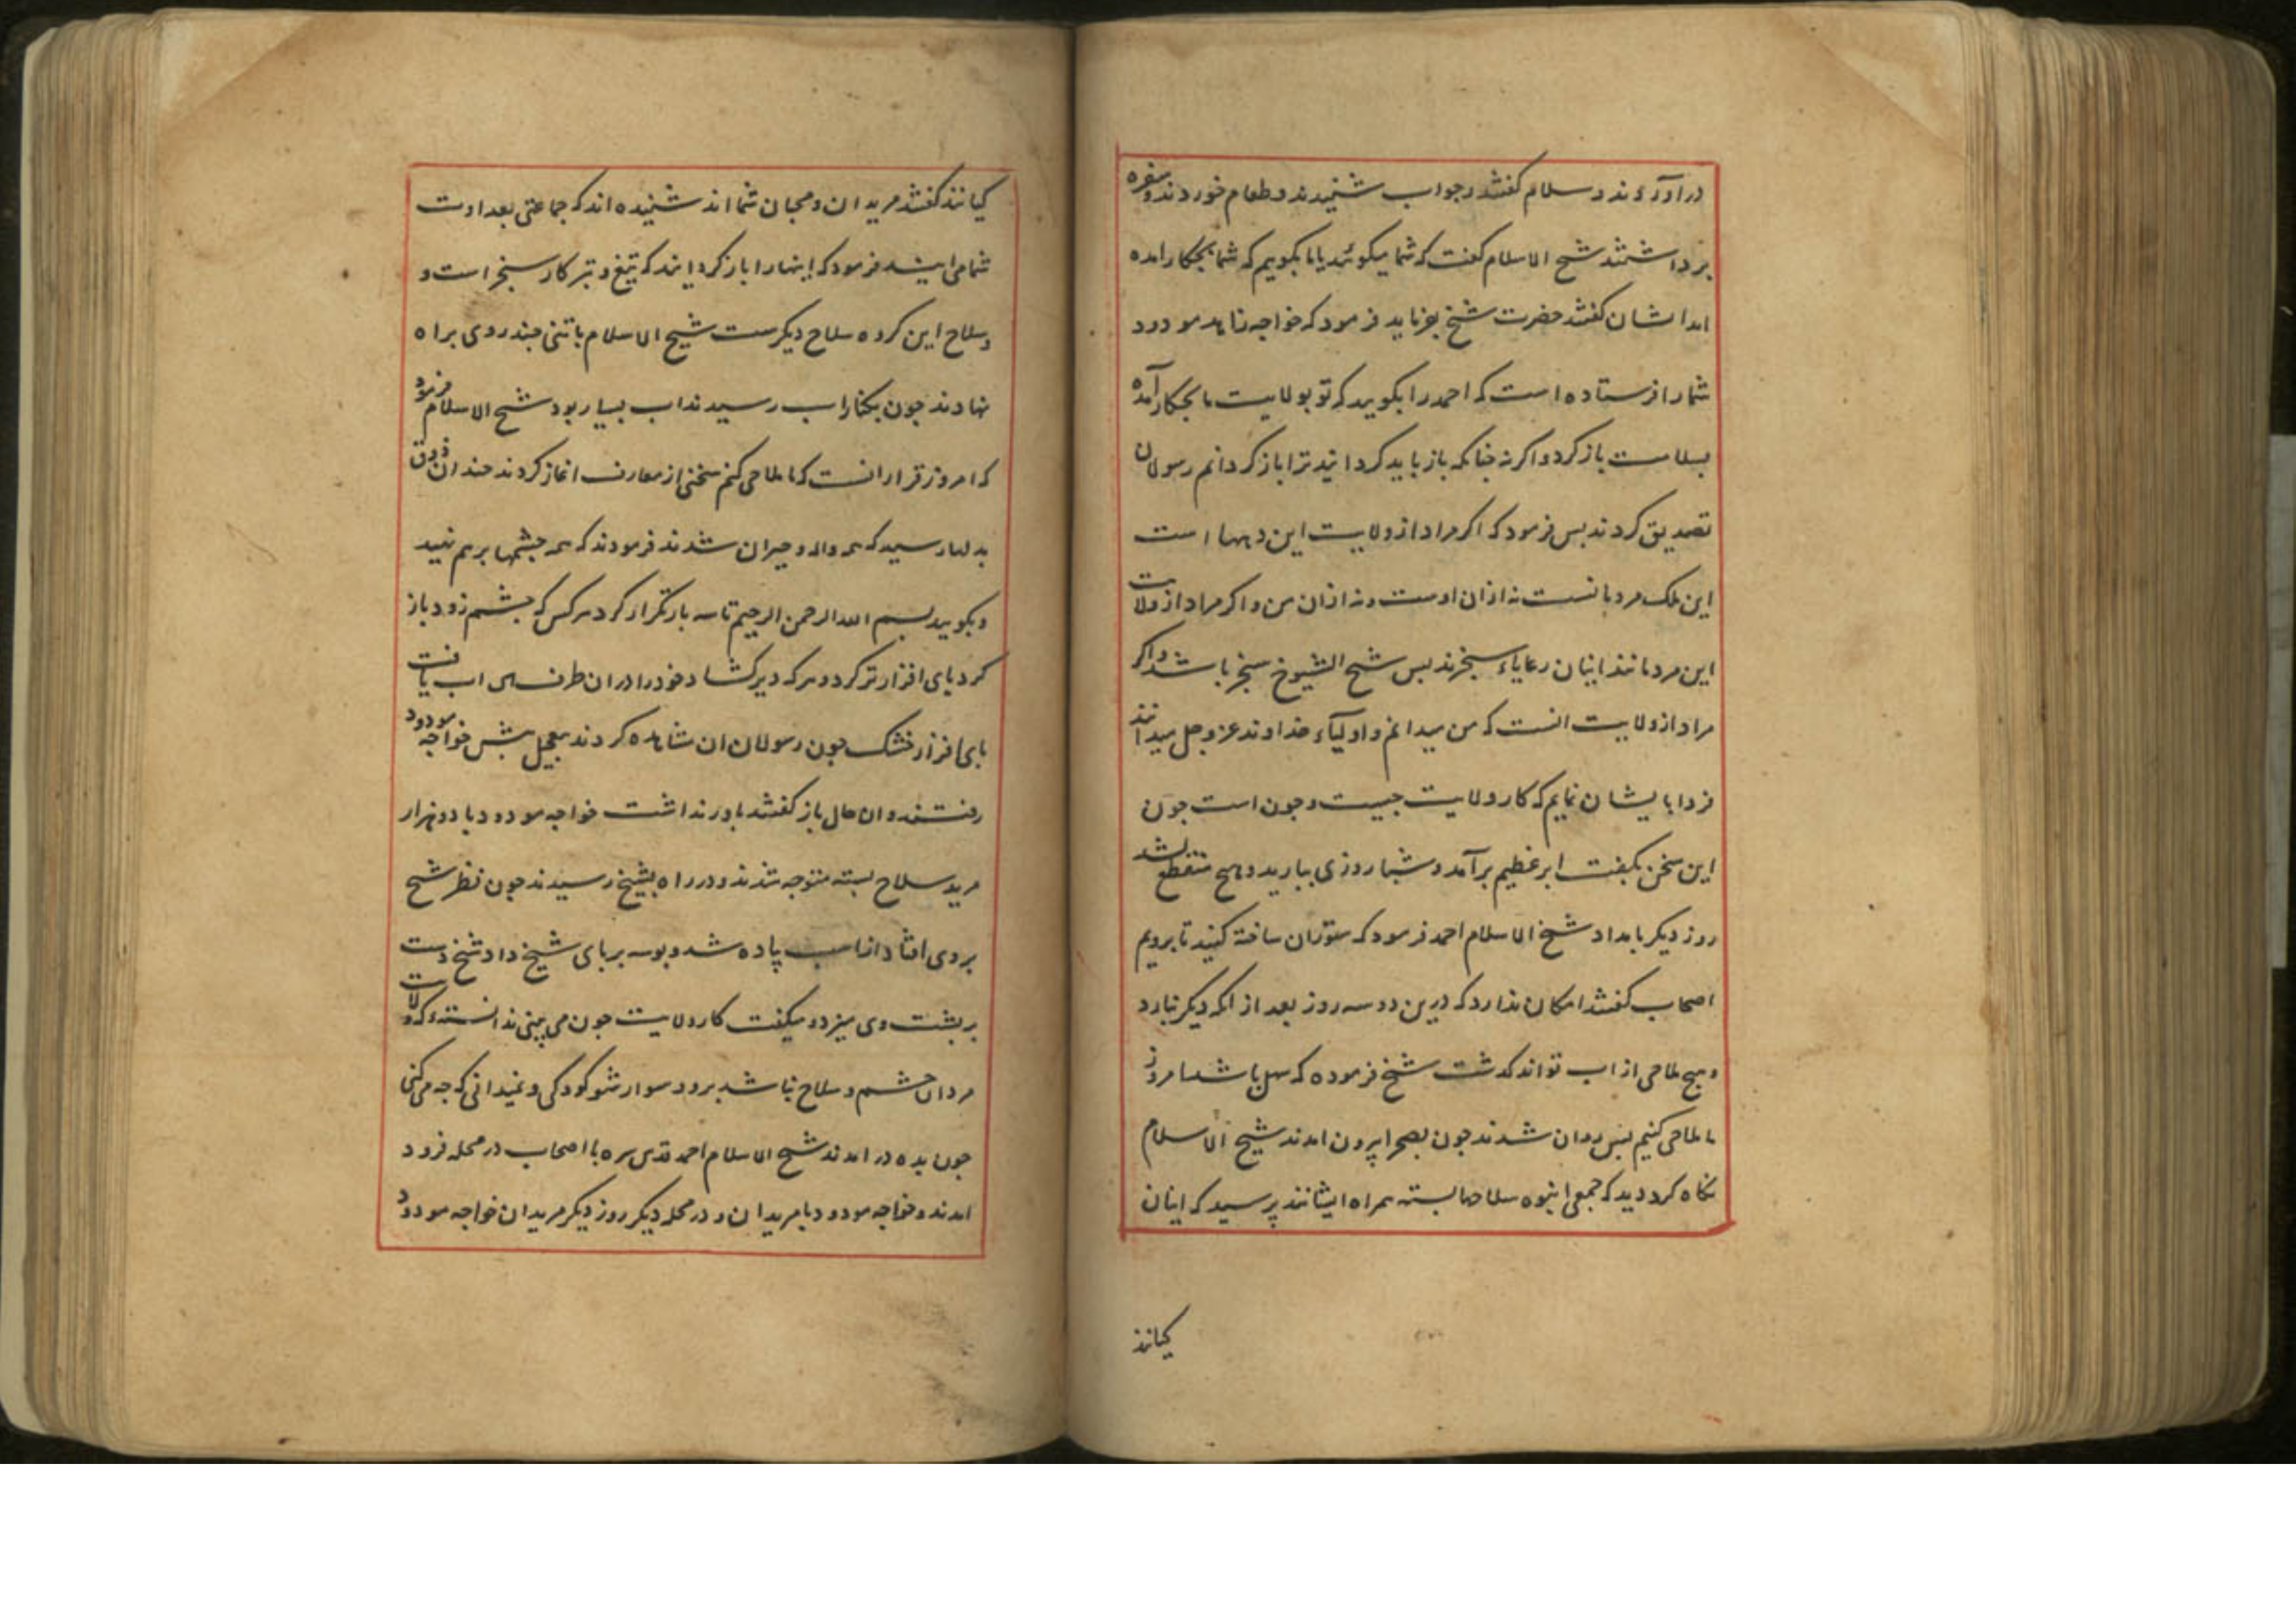 در آوردند و سلام گفتند و جواب شنیدند و طعام خوردند و سفره
برداشتند شیخ الاسلام گفت که شما میکوئید یا ما بکویم که شما بچکار آمده
اید ایشان گفتند حضرت شیخ بفرماید فرمود که خواجه مودود
شما را فرستاده است که احمد را بکویید که تو بولایت ما بچکار آمدهٔ
بسلامت باز کرد و اکرنه چنانکه باز باید کردانید ترا باز کردانم رسولان
تصدیق کردند بس فرمود که اکر مراد از ولایت این دیهها است
این ملک مردمانست نه از ان اوست و نه از ان من و اکر مراد از ولایت
این مردمانند اینان رعایاء سنجرند بس شیخ الشیوخ سنجر باشد و اکر
مراد از ولایت انست که من میدانم و اولیاء خداوند عز و جل میدانند
فردا بایشان نمایم که کار ولایت چیست و جون است جون
این سخن بکفت ابر عظیم برآمد و شبا روزی ببارید و هیچ منقطع نشد
روز دیکر بامداد شیخ الاسلام احمد فرمود که ستوران ساخته کنید تا برویم
اصحاب گفتند امکان ندارد که درین دو سه روز بعد از انکه دیکر نبارد
و هیچ ملاحی از اب تواند کذشت شیخ فرموده که سهل باشد امروز
ما ملاحی کنیم بس روان شدند جون بصحرا بیرون امدند شیخ الاسلام
نکاه کرد دید که جمعی انبوه سلاحها بسته همراه ایشانند پرسید که اینان
کیانند
کیانند گفتند مریدان و محبان شما اند شنیده اند که جماعتی بعداوت
شما می ایند فرمود که اینها را باز کردانید که تیغ و تبر کار سنجر است و
و سلاح این کروه سلاح دیکرست شیخ الاسلام با تنی چند روی براه
نهادند جون بکنار اب رسیدند اب بسیار بود شیخ الاسلام فرمود
که امروز قرار انست که ما ملاحی کنیم سخنی از معارف اغاز کردند چندان ذوق
بدلها رسید که همه واله و حیران شدند فرمودند که همه چشمها برهم نهید
و بکویید بسم الله الرحمن الرحیم تا سه بار تکرار کرد هرکس که چشم زود باز
کرد پای افزار تر کرد و هرکه دیر کشاد خود را در ان طرف اب یافت
پای افزار خشک جون رسولان ان مشاهده کردند بتعجیل پیش خواجه مودود
رفتند و ان حال باز گفتند باور نداشت خواجه مودود با دو هزار
مرید سلاح بسته متوجه شدند و در راه بشیخ رسیدند جون نظر شیخ
بروی افتاد از اسب پیاده شد و بوسه بر پای شیخ داد شیخ دست
بر پشت وی میزد و میکفت کار ولایت جون می بینی ندانسته که ولایت
مردان حشم و سلاح نباشد برو و سوار شو کودکی و نمیدانی که چه میکنی
جون بده در امدند شیخ الاسلام احمد قدس سره با اصحاب در محله فرود
امدند و خواجه مودود با مریدان در محله دیکر روز دیکر مریدان خواجه مودود